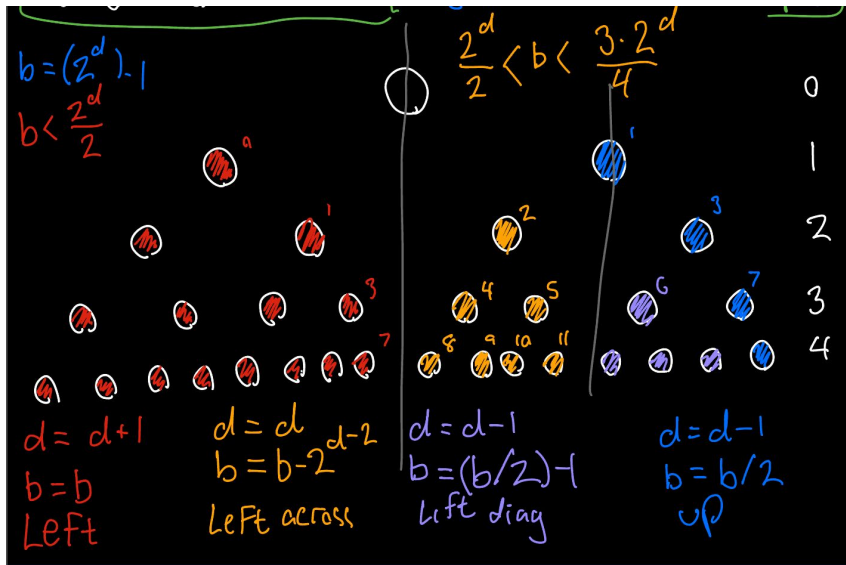 b=(2^d)-1
2^d/2 < b < 3·2^d/4
b< 2^d/2
0
1
2
3
4
0
1
3
7
1
2
3
4
5
6
7
8
9
10
11
d= d+1
b=b
Left
d=d
b=b-2^d-2
Left across
d=d-1
b=(b/2)-1
Left diag
d=d-1
b=b/2
up